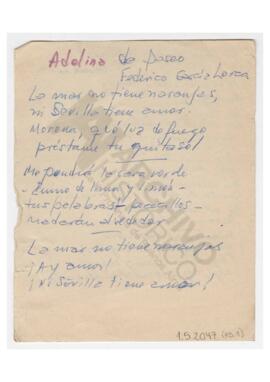 Adelina de paseo
Federico García Lorca
La mar no tiene naranjas,
ni Sevilla tiene amor.
Morena, qué luz de fuego
préstame tu quitasol
Me pondrá la cara verde
- zumo de lima y limón -
tus palabras - pececillos -
nadarán alrededor
La mar no tiene naranjas
¡Ay amor!
¡Ni Sevilla tiene amor!
ARCHIVO
HISTÓRICO
1.5.2047 (pg.1)